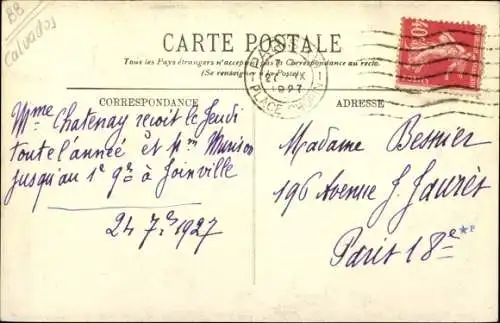 BB
Calvados
CARTE POSTALE
Tous les Pays étrangers n'acceptent pas la Correspondance au recto.
(Se renseigner à la Poste)
1927
PLACE CHOPIN
CORRESPONDANCE
ADRESSE
Mme Chatenay reçoit le Jeudi
toute l'année et Mm
jusqu'au 1e à Joinville
24 7e 1927
Madame Besnier
196 Avenue J. Jaurès
Paris 18e